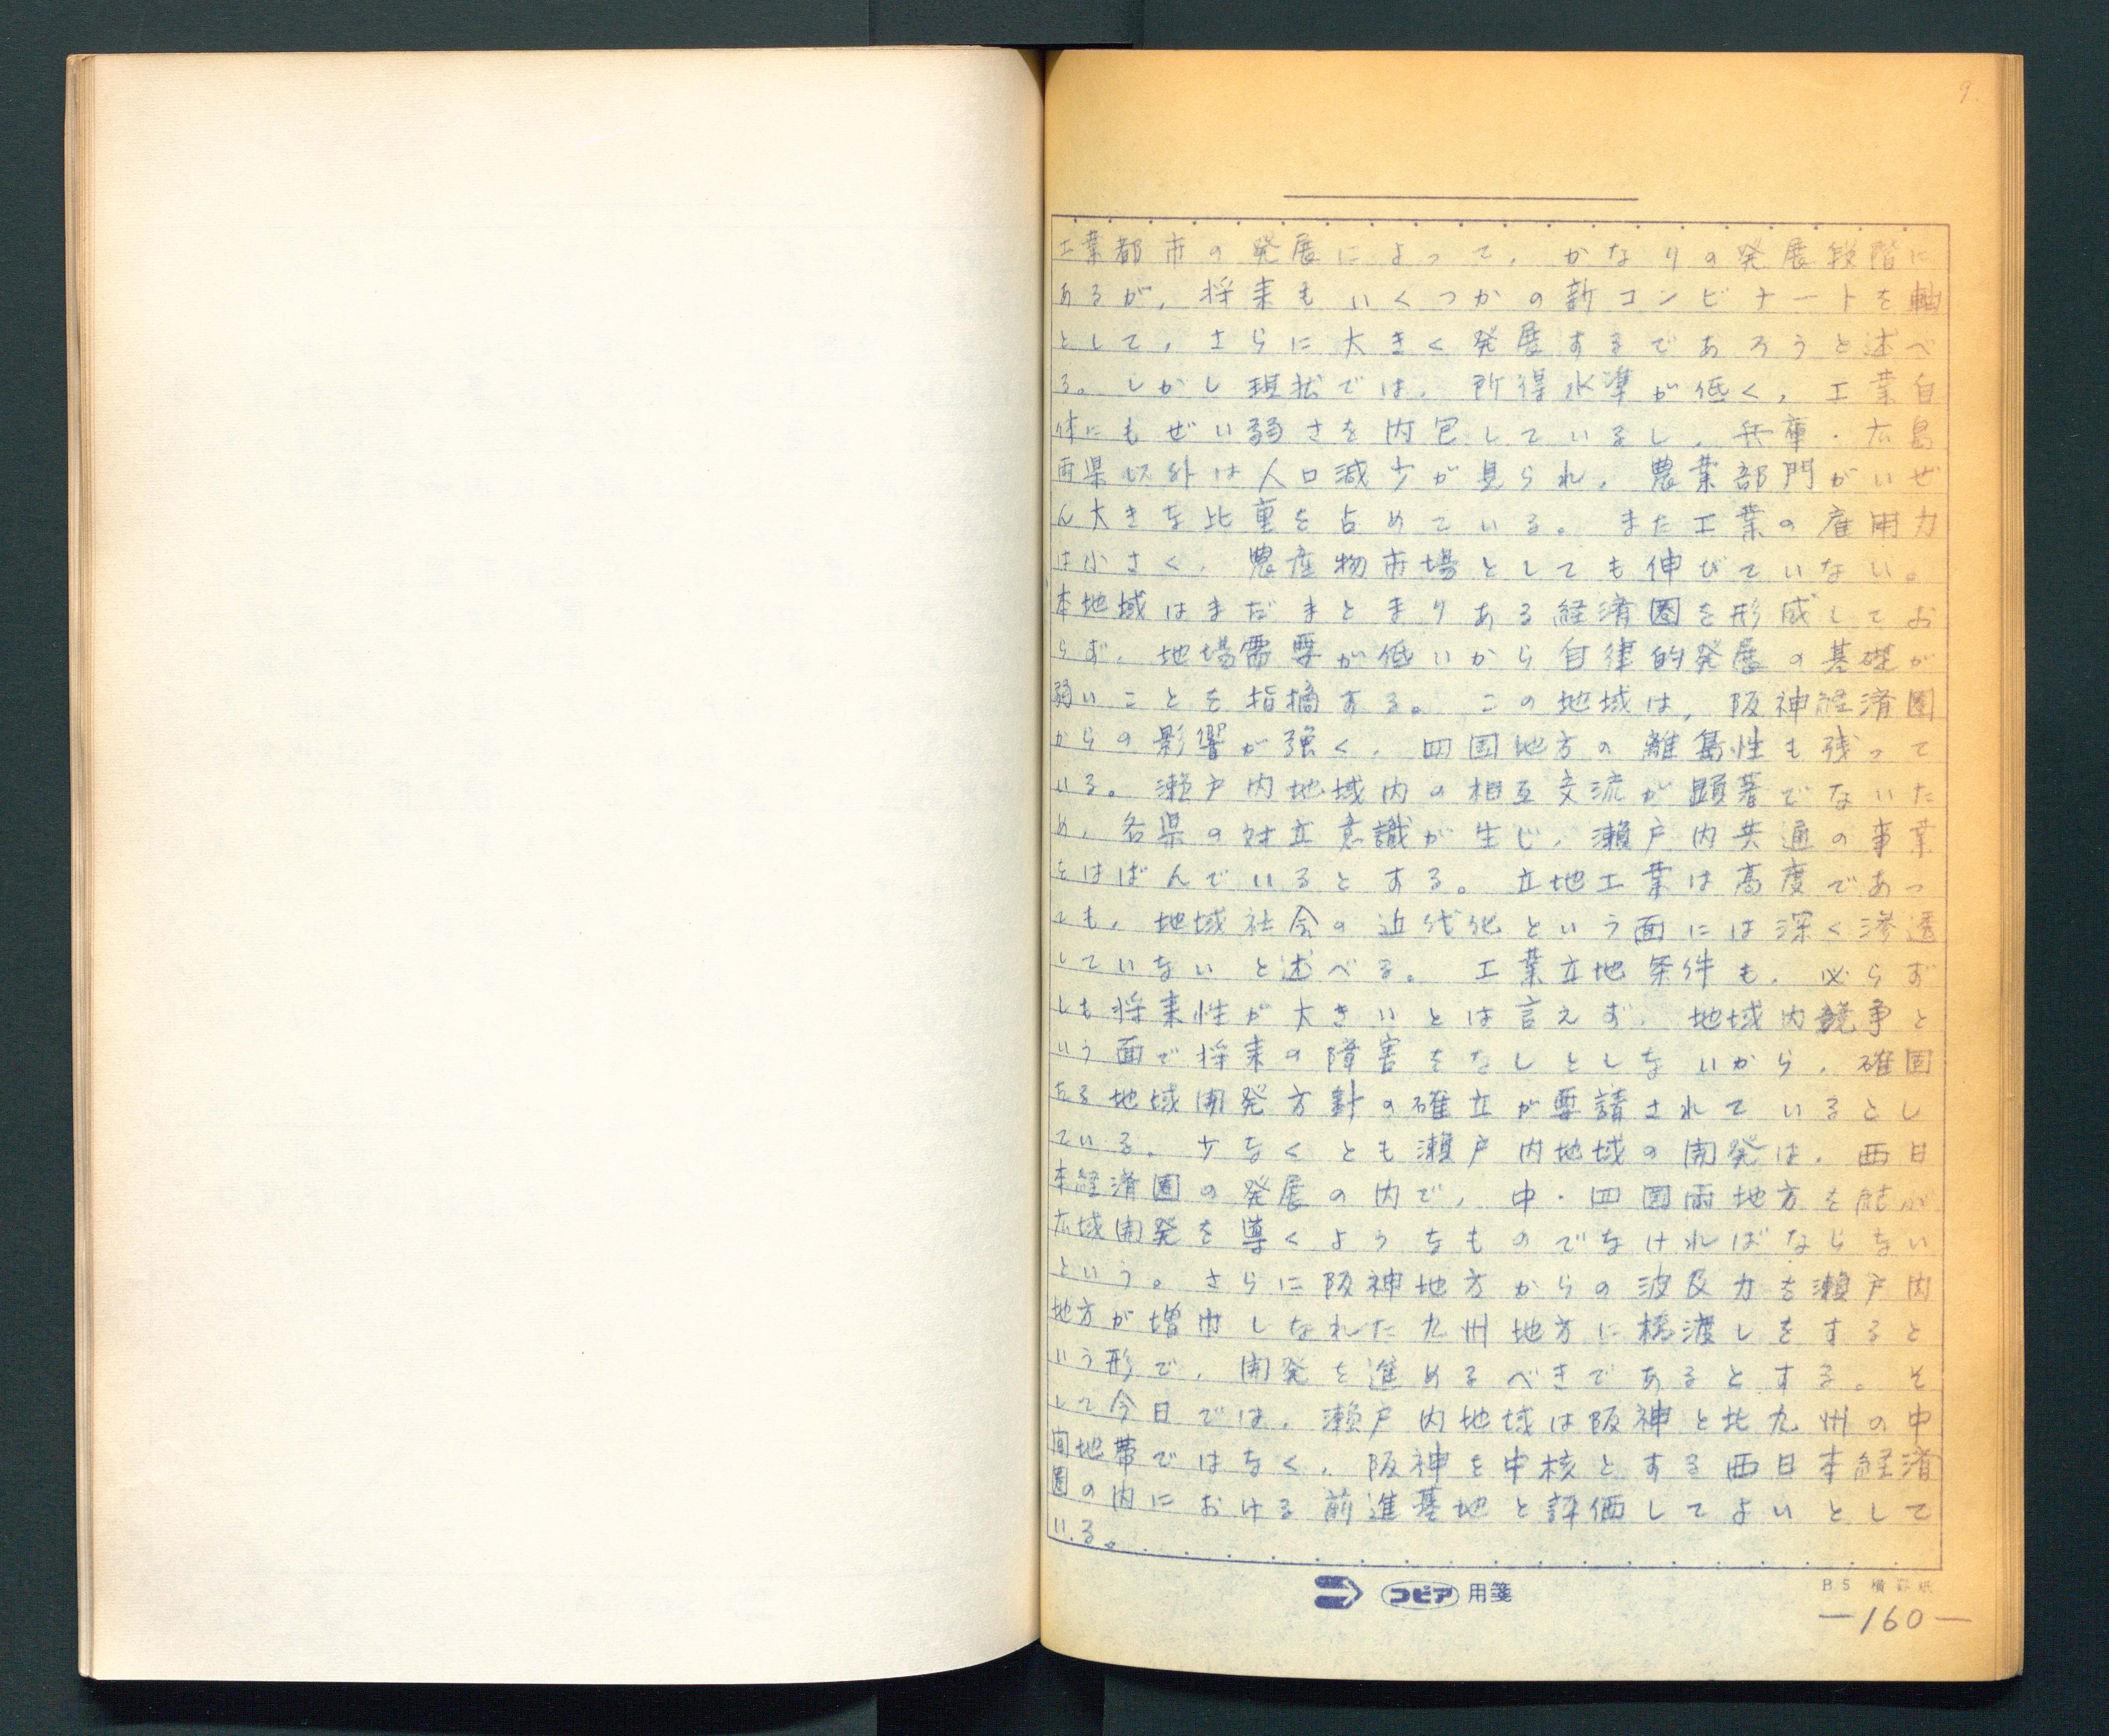 9.
工業都市の発展によって、かなりの発展段階に
あるが、将来もいくつかの新コンビナートを軸
として、さらに大きく発展するであろうと述べ
る。しかし現状では、所得水準が低く、工業自
体にもぜい弱さを内包しているし、兵庫・広島
両県以外は人口減少が見られ、農業部門がいぜ
ん大きな比重を占めている。また工業の雇用力
は小さく、農産物市場としても伸びていない。
本地域はまだまとまりある経済圏を形成してお
らず、地場需要が低いから自律的発展の基礎が
弱いことを指摘する。この地域は、阪神経済圏
からの影響が強く、四国地方の離島性も残って
いる。瀬戸内地域内の相互交流が顕著でないた
め、各県の対立意識が生じ、瀬戸内共通の事業
をはばんでいるとする。立地工業は高度であっ
ても、地域社会の近代化という面には深く滲透
していないと述べる。工業立地条件も、必らず
しも将来性が大きいとは言えず、地域内競争と
いう面で将来の障害をなしとしないから、確固
たる地域開発方針の確立が要請されているとし
ている。少なくとも瀬戸内地域の開発は、西日
本経済圏の発展の内で、中・四国両地方を結ぶ
広域開発を導くようなものでなければならない
という。さらに阪神地方からの波及力を瀬戸内
地方が増巾しなれた九州地方に橋渡しをすると
いう形で、開発を進めるべきであるとする。そ
して今日では、瀬戸内地域は阪神と北九州の中
間地帯ではなく、阪神を中核とする西日本経済
圏の内における前進基地と評価してよいとして
いる。
コピア 用箋
B5 横罫紙
—160—